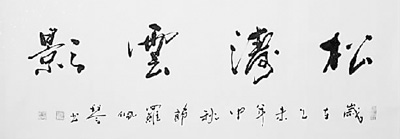 松濤雲影
歲在乙未年中秋節羅佩琴書